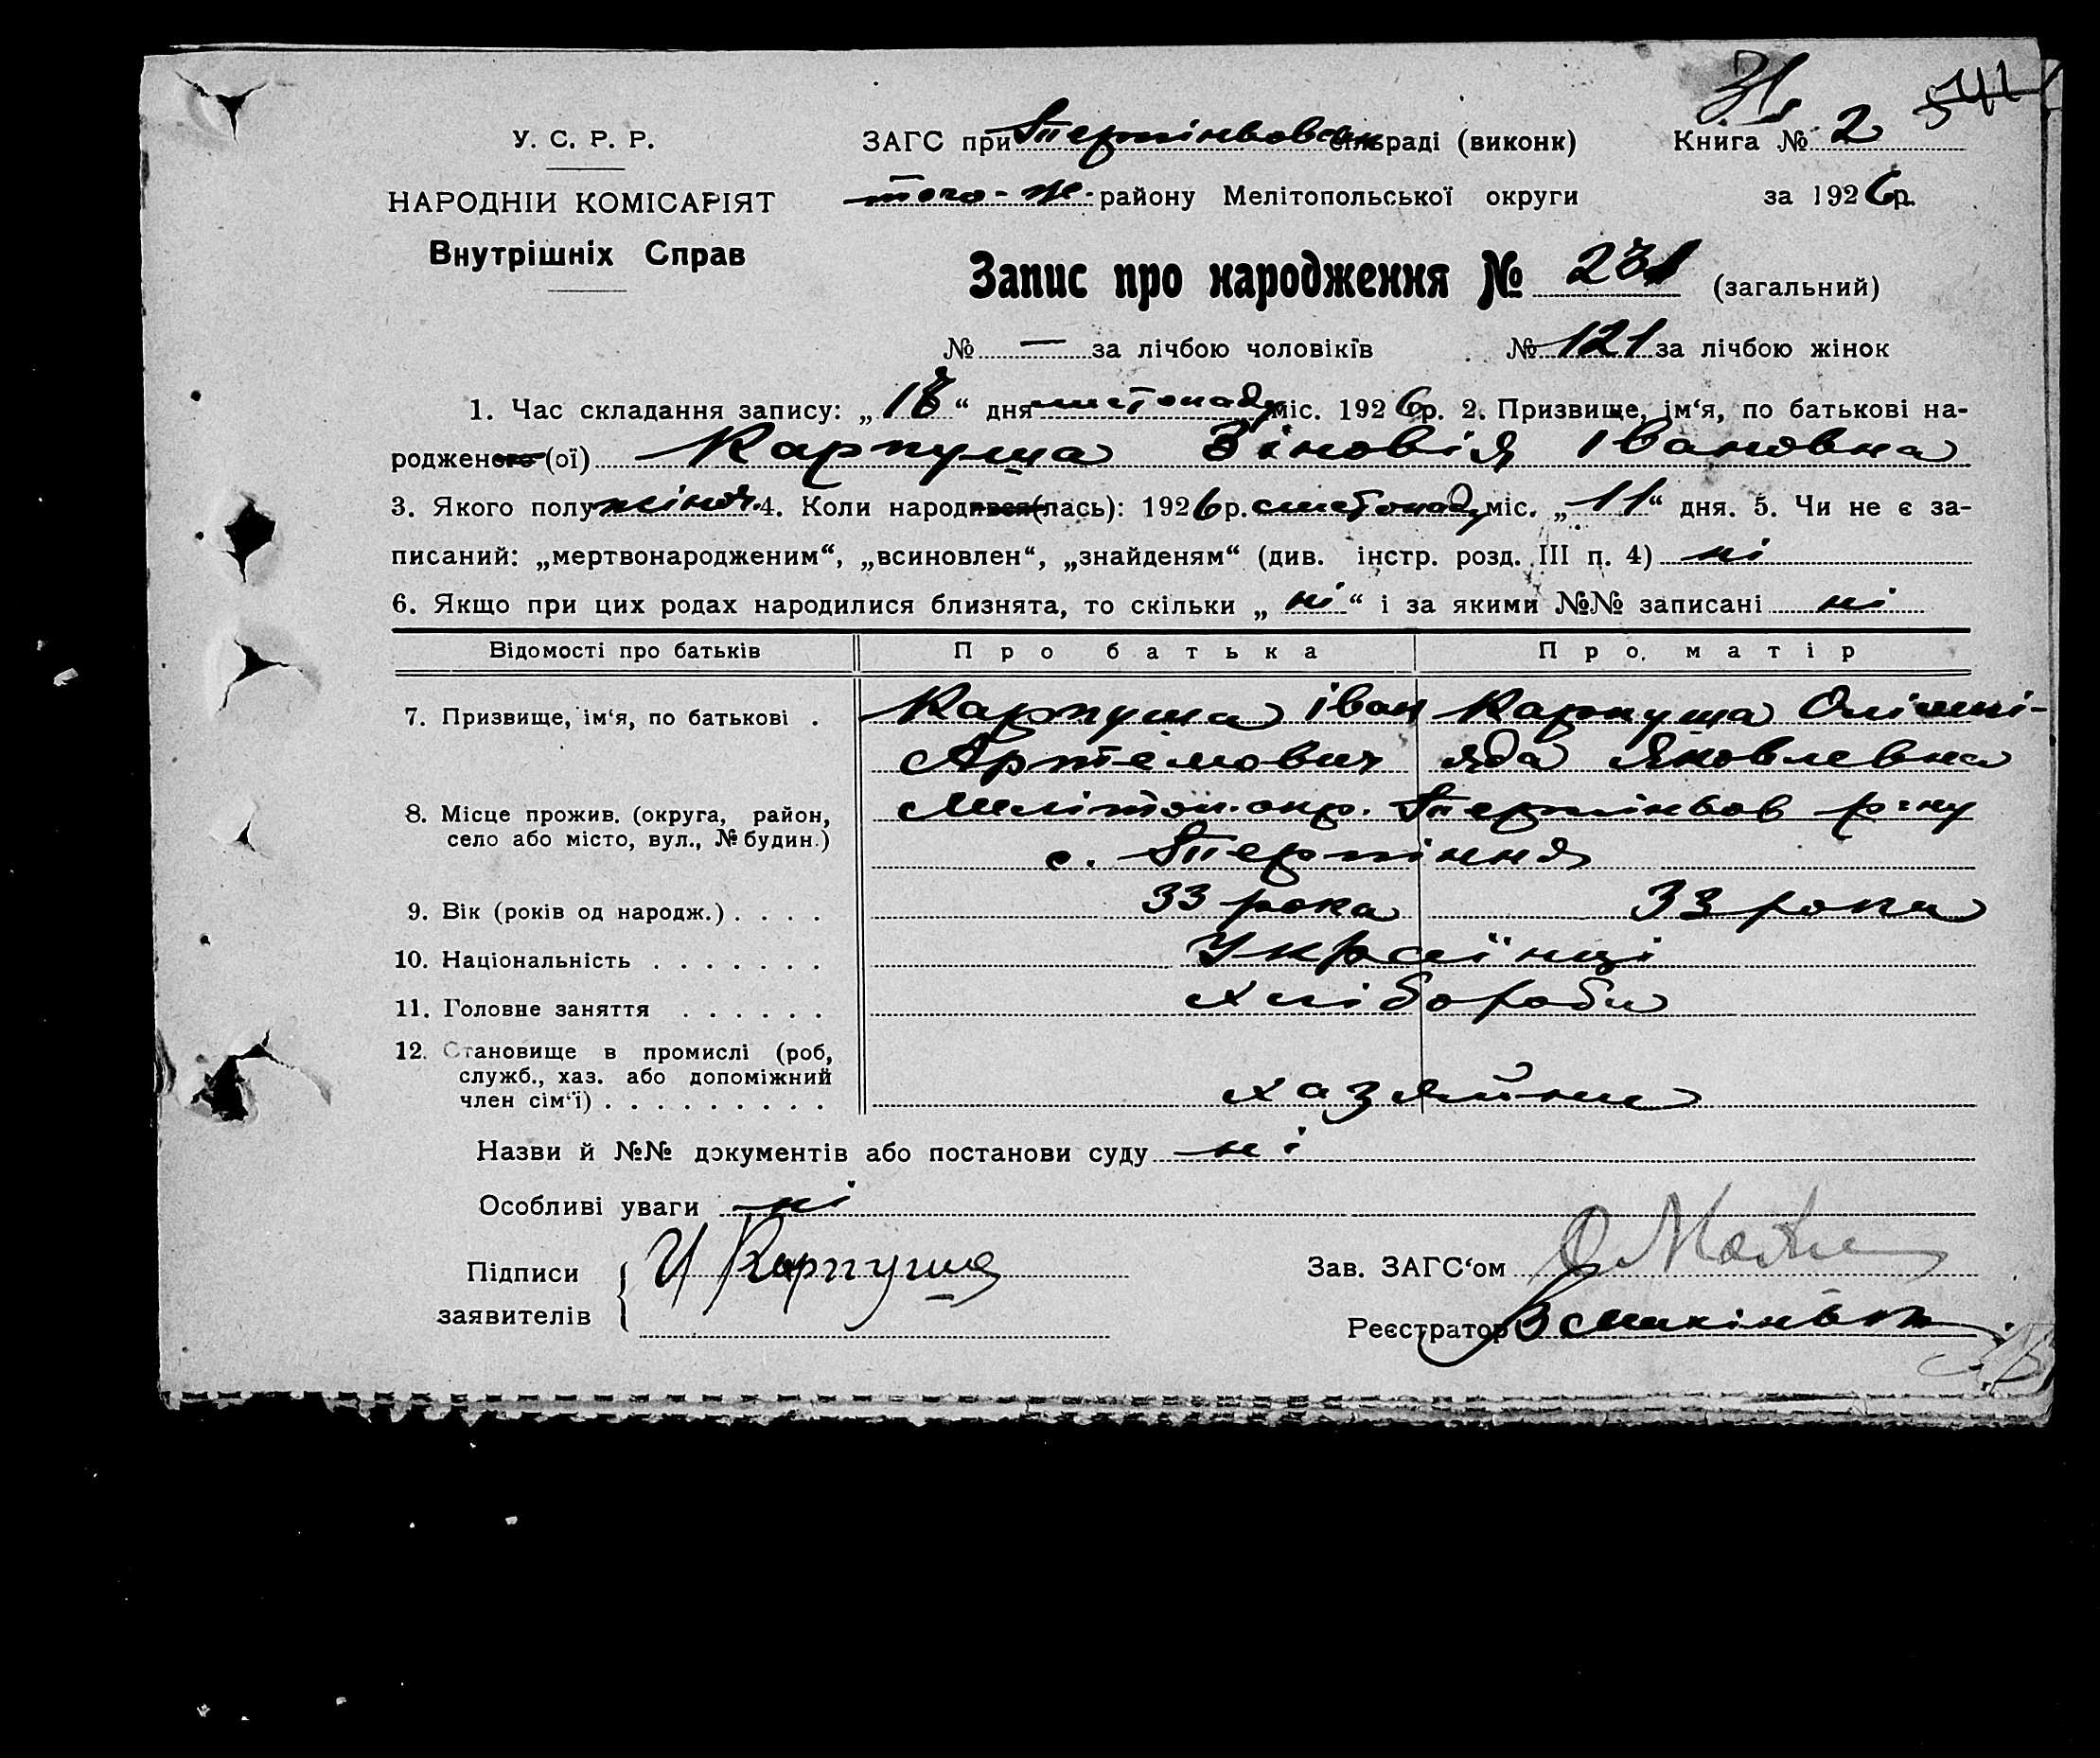 У. С. Р. Р.
НАРОДНІЙ КОМІСАРІЯТ
Внутрішніх Справ
ЗАГС при Терпіньовск сільраді (виконк) Книга № 2
того-ж району Мелітопольської округи за 1926 р.
Запис про народження № 231 (загальний)
№ — за лічбою чоловіків № 121 за лічбою жінок
1. Час складання запису: „ “ дня листопаду міс. 1926 р. 2. Призвище, ім‘я, по батькові на-
родженого (ої) Карпуша Зіновія Івановна
3. Якого полу жіноч. 4. Коли народився(лась): 1926 р. листопаду міс. „11“ дня. 5. Чи не є за-
писаний: „мертвонародженим“, „всиновлен“, „знайденям“ (див. інстр. розд. III п. 4) ні
6. Якщо при цих родах народилися близнята, то скільки „ні“ і за якими №№ записані ні
Відомості про батьків Про батька Про матір
7. Призвище, ім‘я, по батькові . Карпуша Іван Карпуша Олімпі-
Артемович яда Яковлевна
8. Місце прожив. (округа, район, Меліtoп. окр. Терпіньов р-ну
село або місто, вул., № будин.) с. Терпіння
9. Вік (років од народж.) . . . . 33 рока 33 роки
10. Національність . . . . . . . Українці
11. Головне заняття . . . . . . хлібороби
12. Становище в промислі (роб,
служб., хаз. або допоміжний
член сім‘ї) . . . . . . . . . хазяйни
Назви й №№ документів або постанови суду ні
Особливі уваги ні
Підписи И Карпуша Зав. ЗАГС‘ом
заявителів Реєстратор